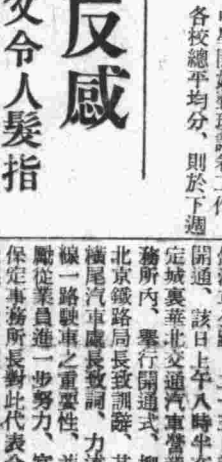 各校總平均分、則於下週
反感
令人髮指
開通、該日上午八時半
定城裏華北交通汽車營
務所內、舉行開通式、
北京鐵路局長致訓辭、
橫尾汽車處長致詞、力
線一路駛車之重要性、
勵從業員進一步努力、
保定事務所長對此代表